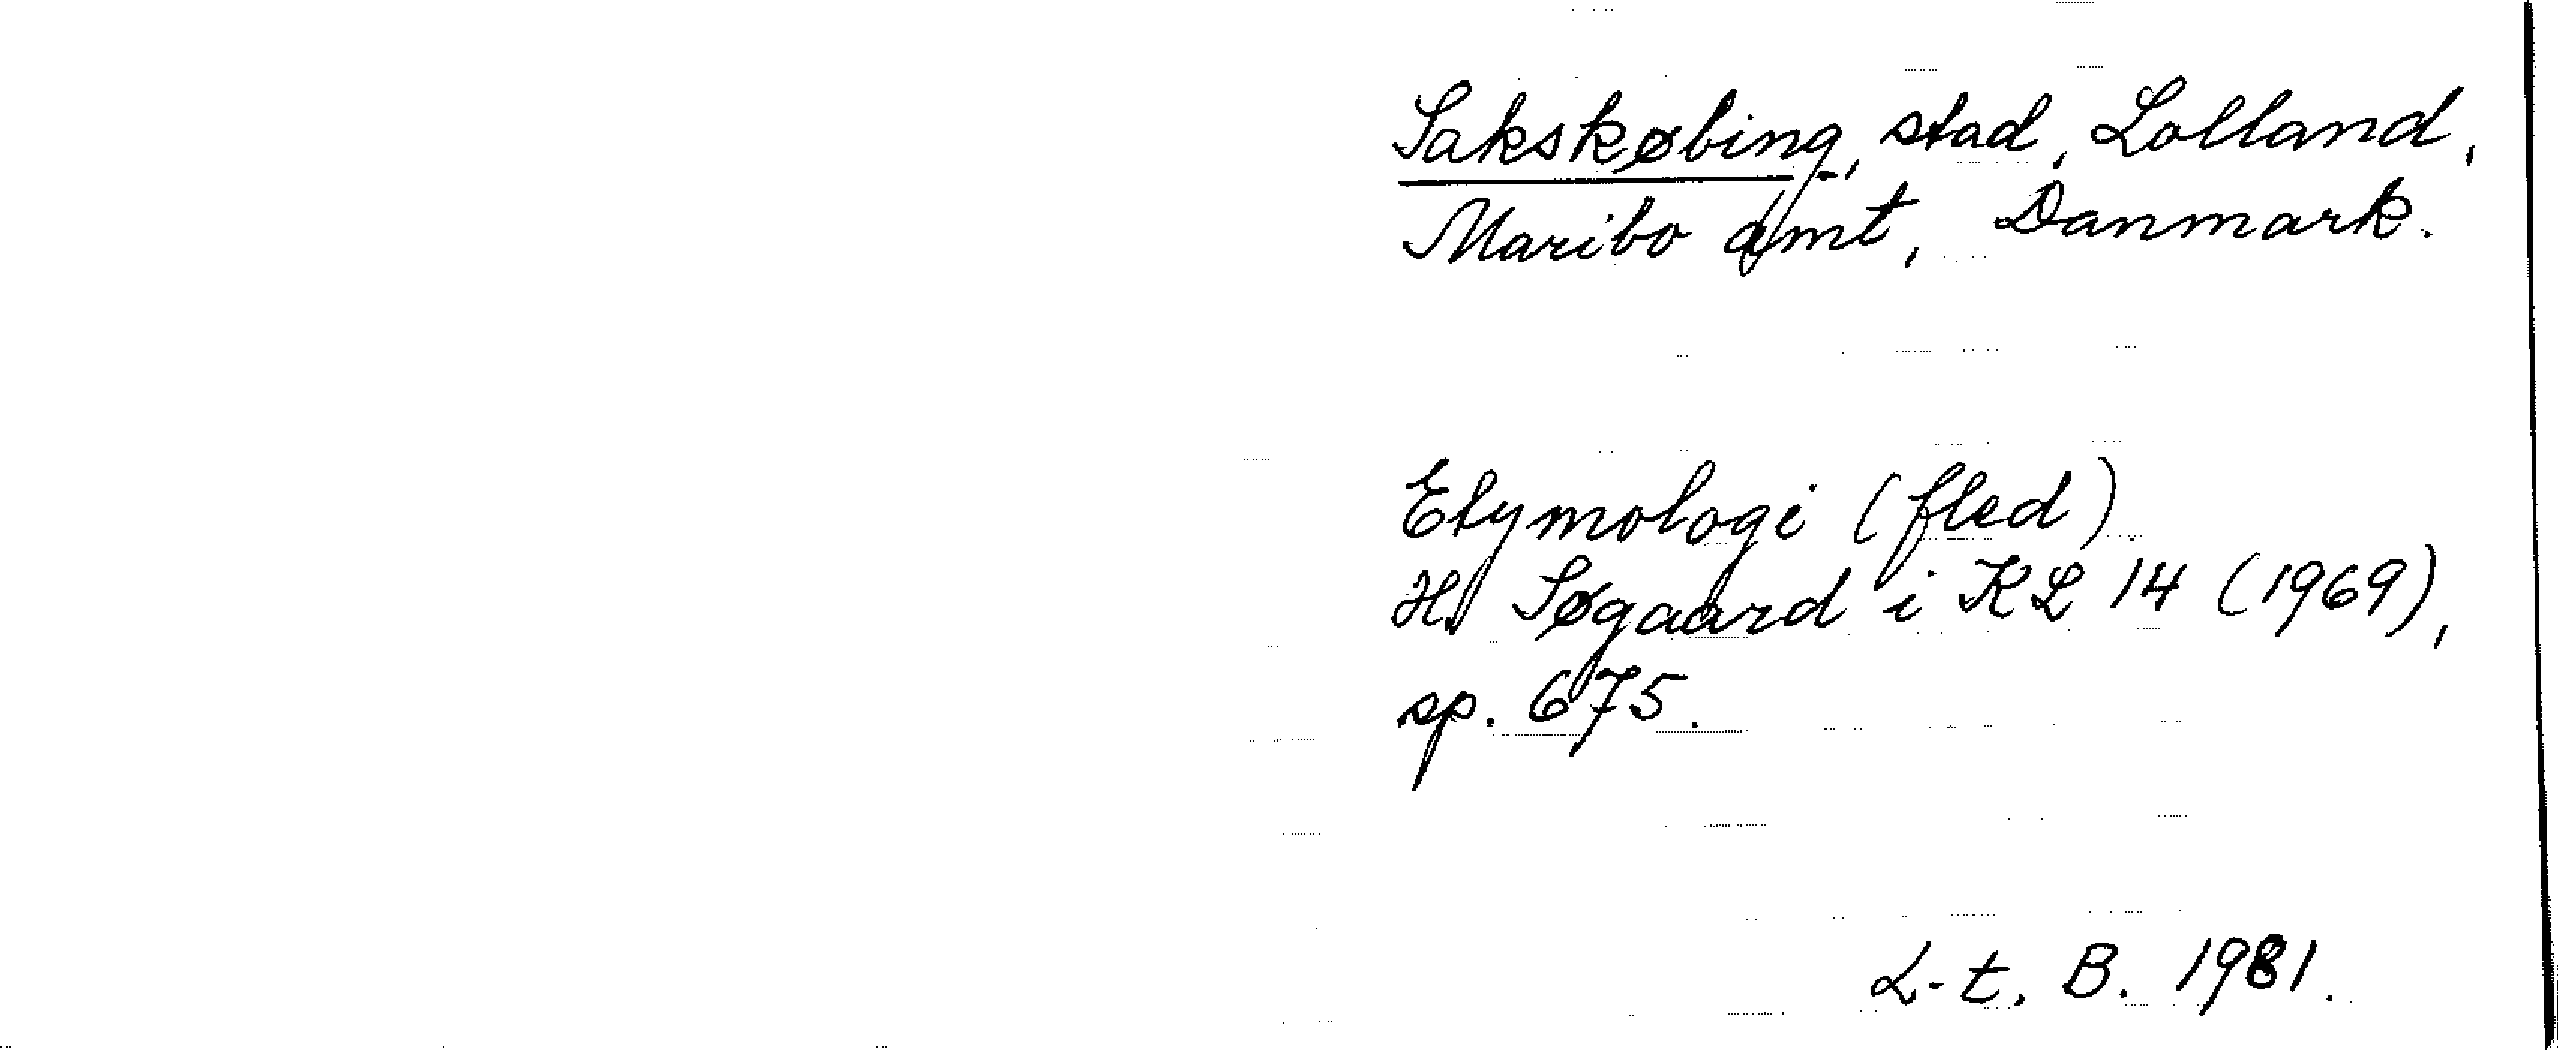 Sakskøbing, stad, Lolland,
Maribo amt, Danmark.
Etymologi (fled).
H. Søgaard i KL 14 (1969),
sp. 675.
L-t. B. 1981.